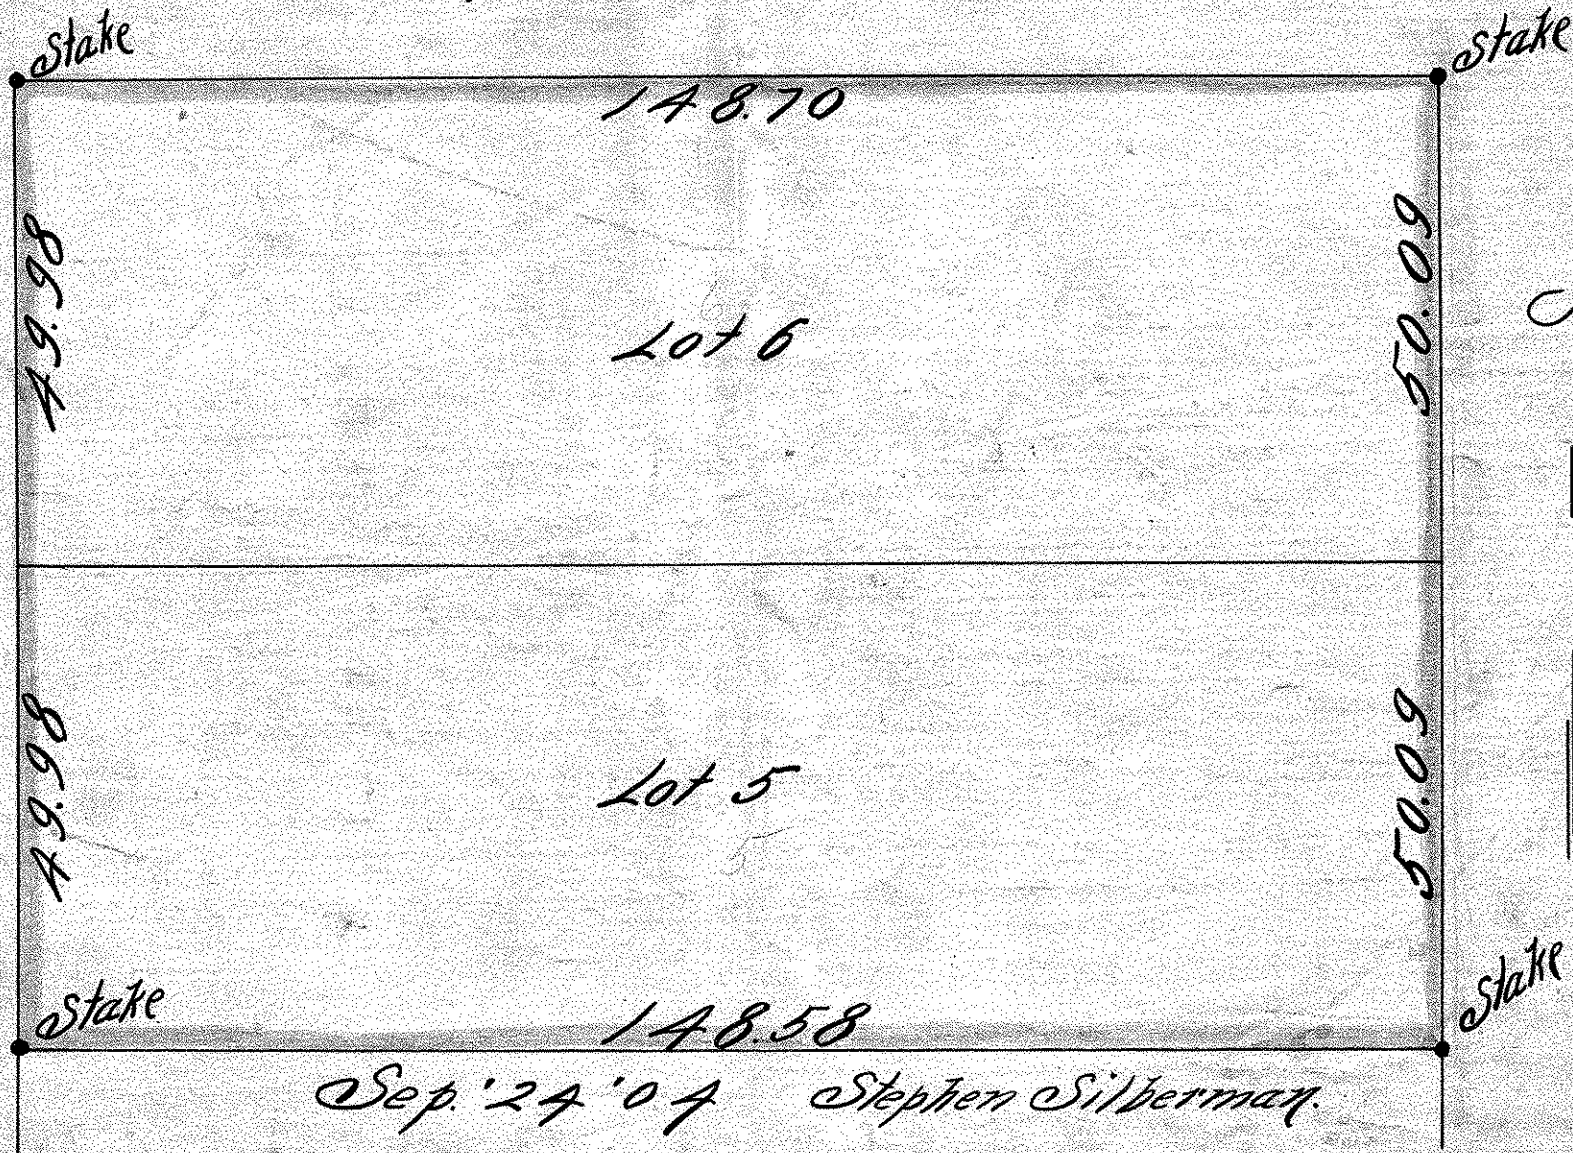 Stake
Stake
148.70
49.98
50.09
Lot 6
49.98
50.09
Lot 5
Stake
Stake
148.58
Sep. '24 '04 Stephen Silberman.